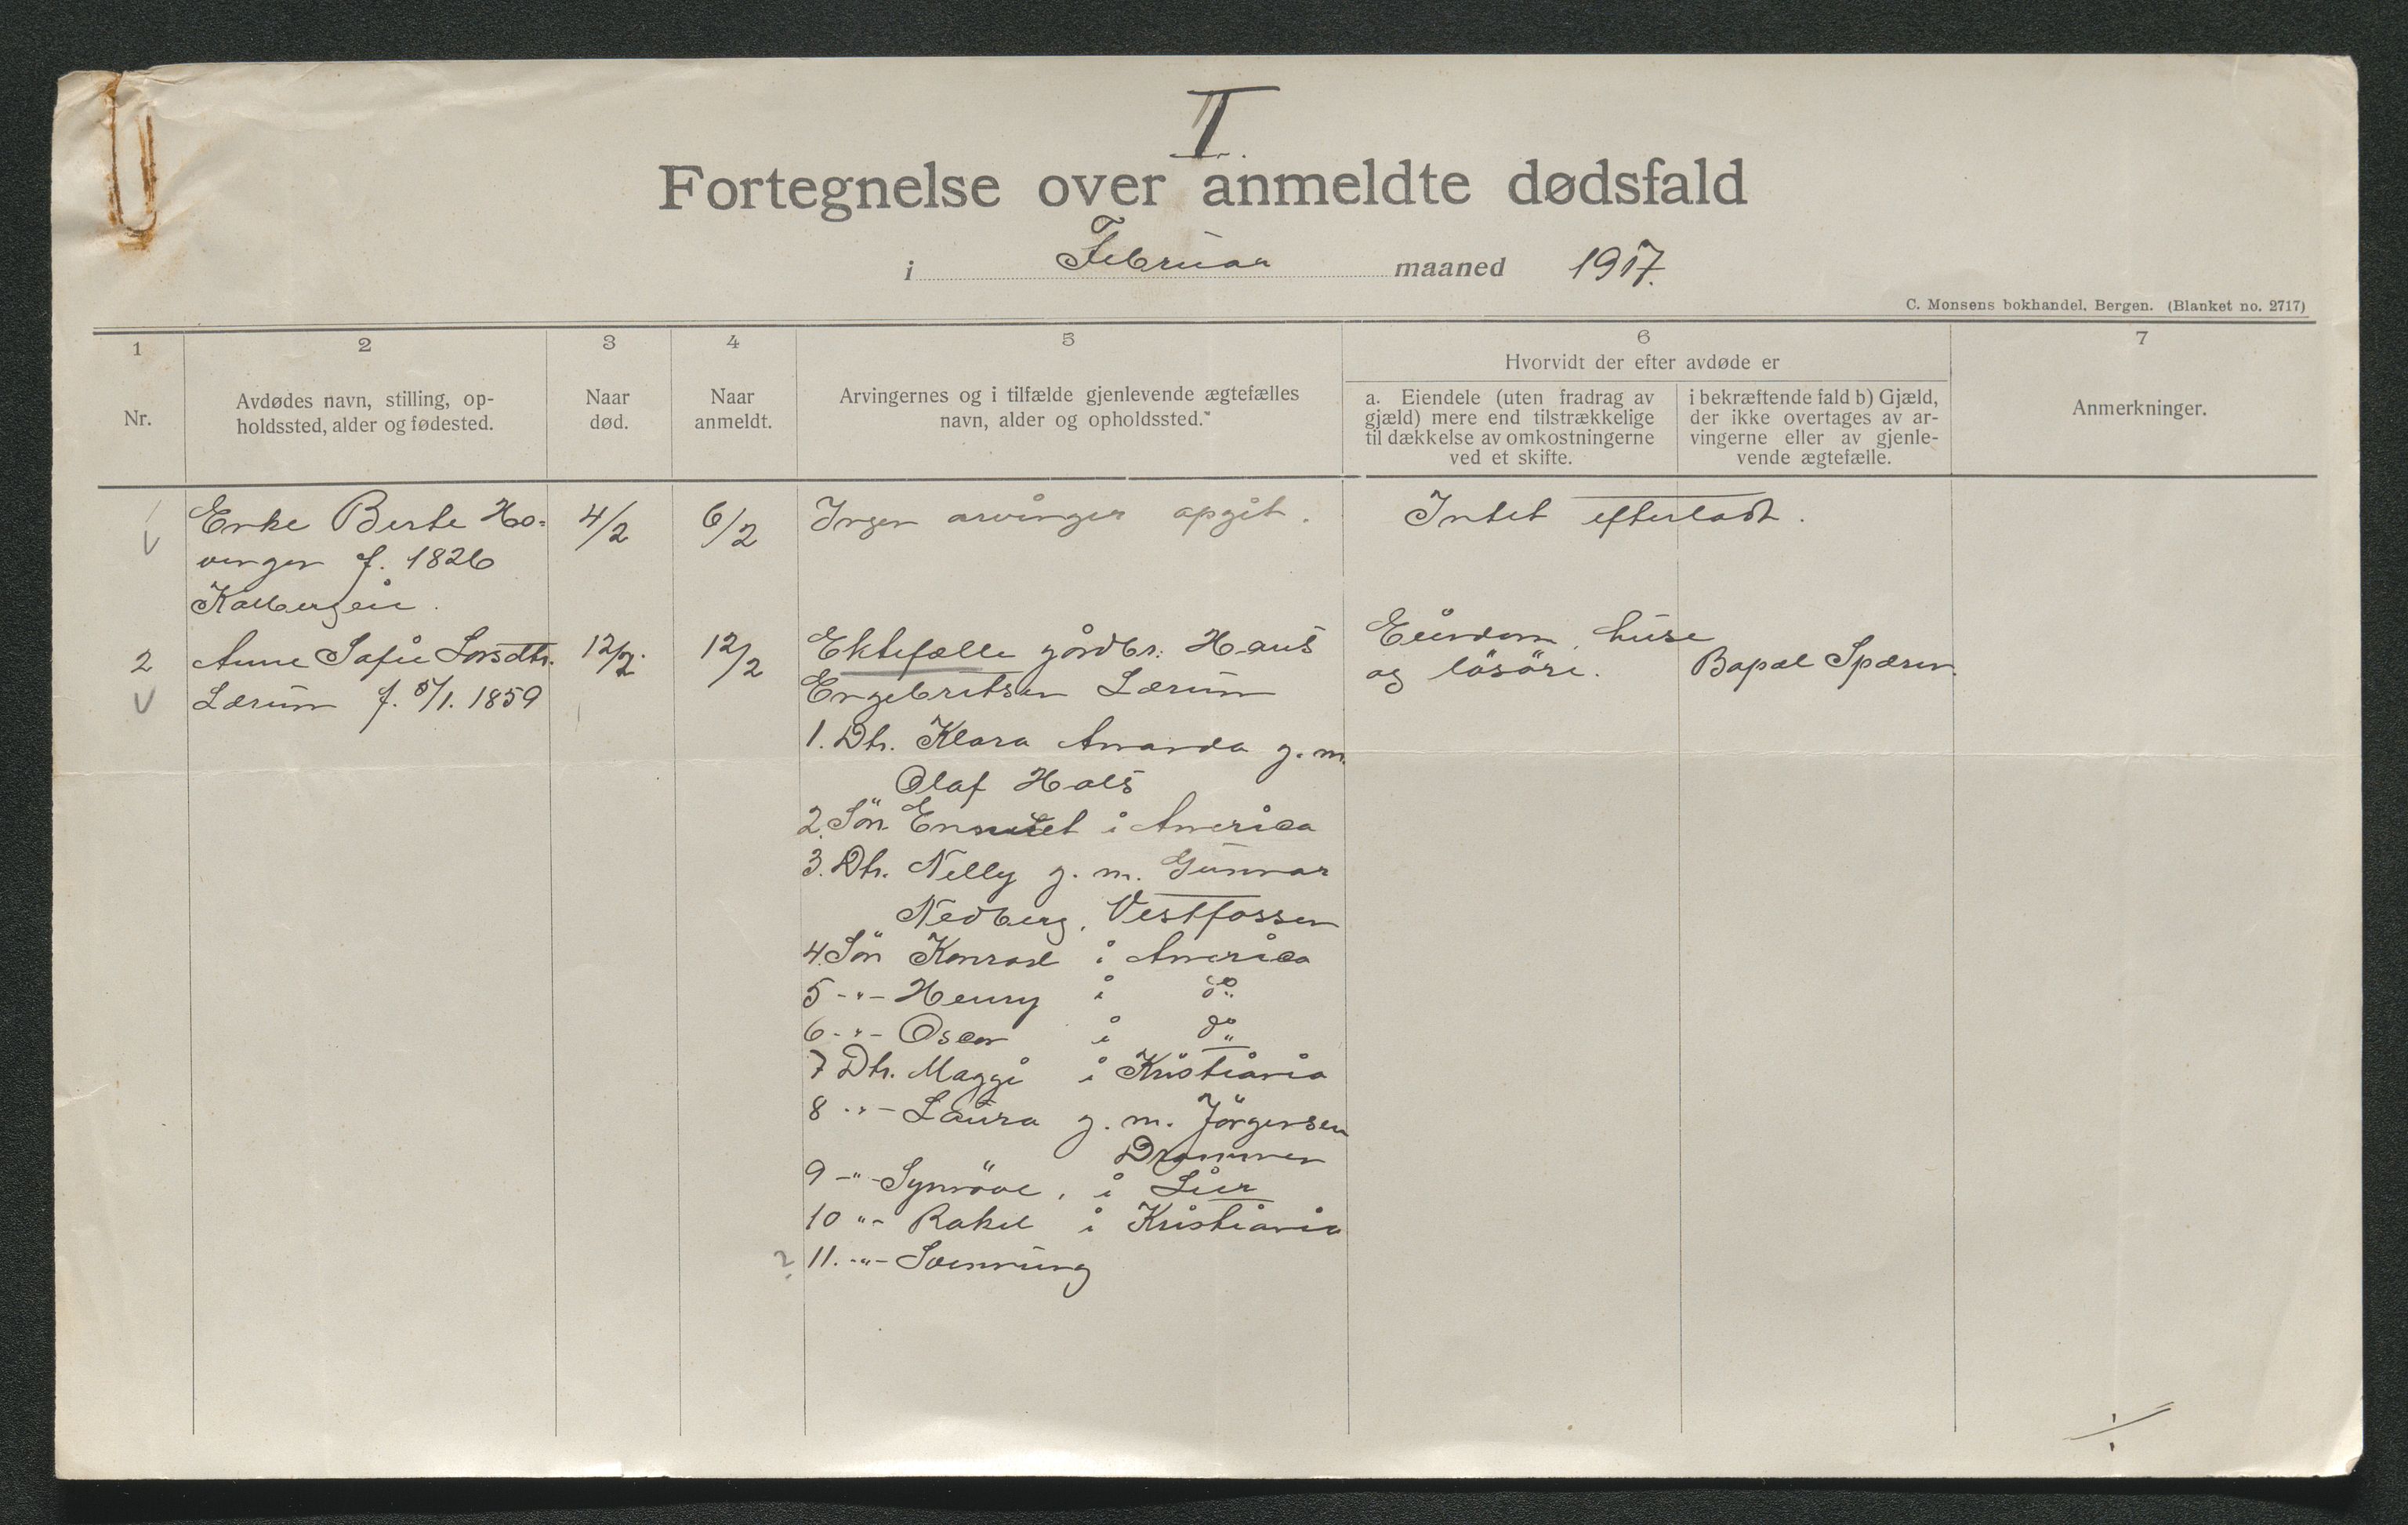 II.
Fortegnelse over anmeldte dødsfald
i Februar maaned 1917.
C. Monsens bokhandel, Bergen. (Blanket no. 2717)
1
Nr.
2
Avdødes navn, stilling, op-
holdssted, alder og fødested.
3
Naar
død.
4
Naar
anmeldt.
5
Arvingernes og i tilfælde gjenlevende ægtefælles
navn, alder og opholdssted.
6
Hvorvidt der efter avdøde er
a. Eiendele (uten fradrag av
gjæld) mere end tilstrækkelige
til dækkelse av omkostningerne
ved et skifte.
i bekræftende fald b) Gjæld,
der ikke overtages av ar-
vingerne eller av gjenle-
vende ægtefælle.
7
Anmerkninger.
1 Enke Berte Ho-
venger f. 1826
4/2 6/2 Ingen arvinger opgit. Intet efterladt.
2 Anne Sofie Larsdtr.
Lærum f. 5/1. 1859
12/2. 12/2
Ektefælle gårdbr. Hans
Engebretsen Lærum
1. Dtr. Klara Amanda g. m.
Olaf Hals
2. Sön i America
3. Dtr. Nelly g. m. Gunnar
Nedberg, Vestfossen
4. Sön Konrad i America
5 -"- Henry i do
6 -"- Oscar i do
7 Dtr. Maggi i Kristiania
8 -"- Laura g. m. Jörgensen
Drammen
9 -"- Synnöve, i Lier
10 "- Rakel i Kristiania
? 11. -"- Solveig
Eiendom, huse
og lösöre.